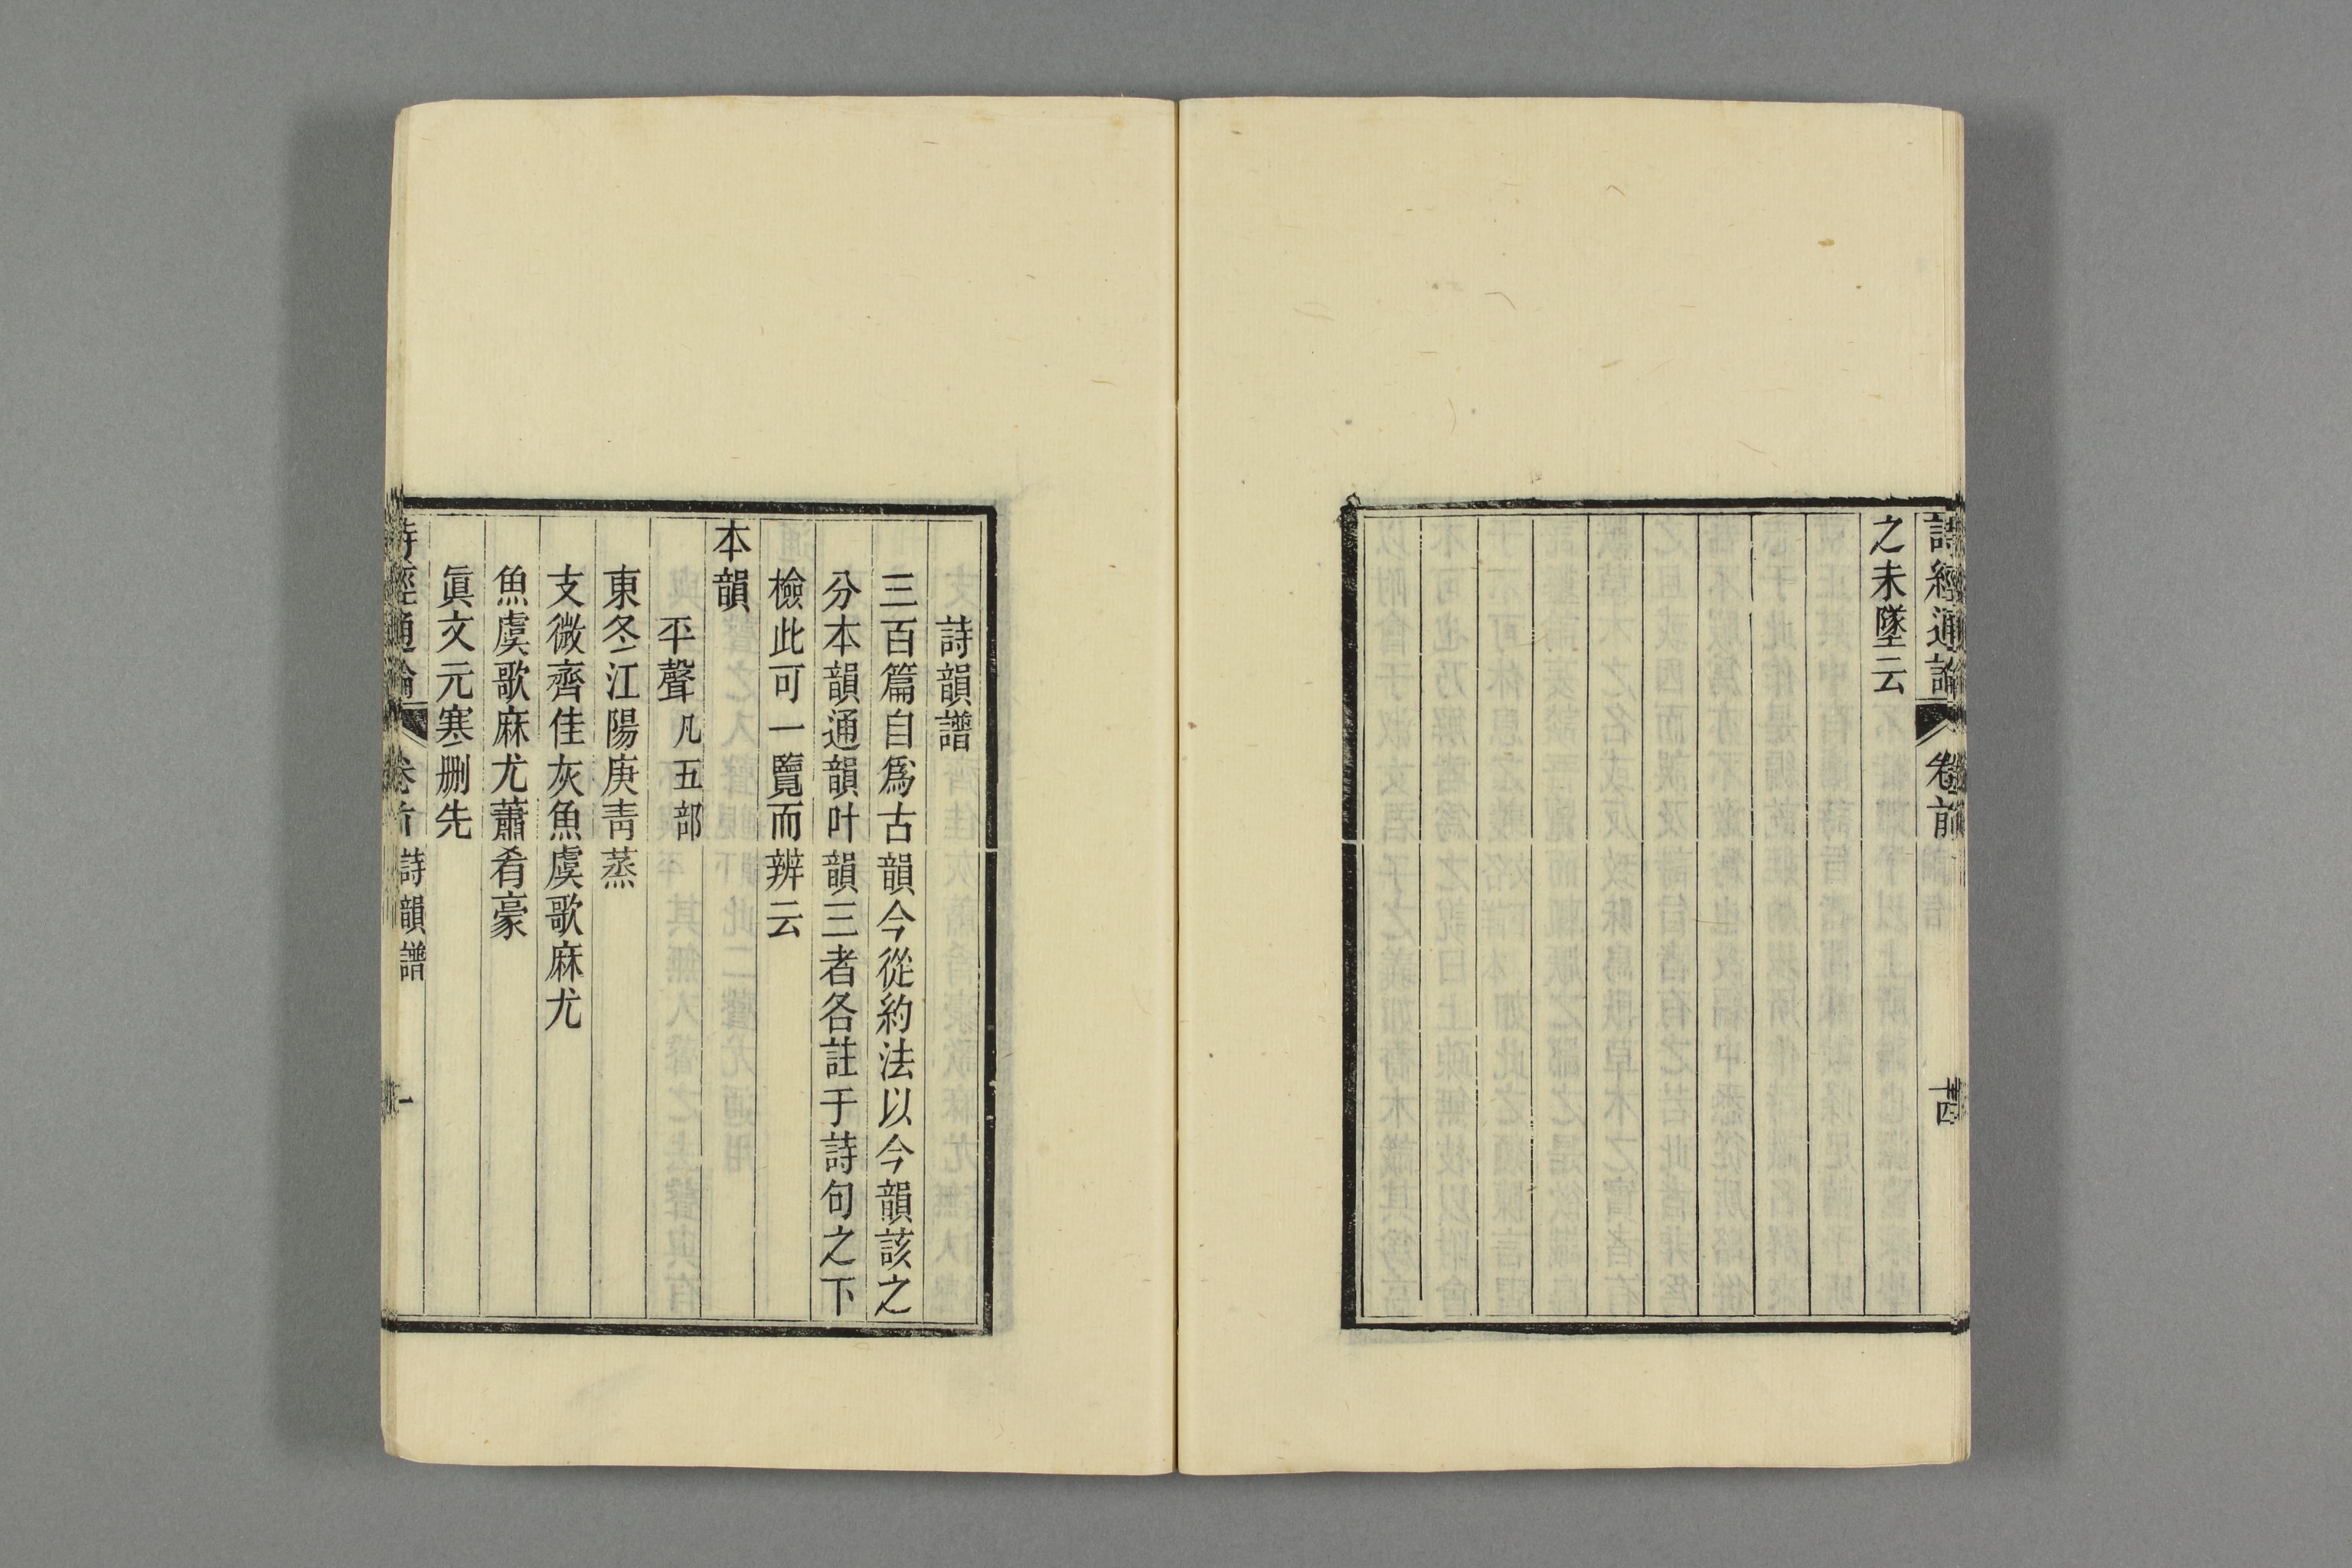 詩經通論 卷前 十四
之未墜云
詩韻譜
三百篇自爲古韻今從約法以今韻該之
分本韻通韻叶韻三者各註于詩句之下
檢此可一覽而辨云
本韻
平聲凡五部
東冬江陽庚靑蒸
支微齊佳灰魚虞歌麻尤
魚虞歌麻尤蕭肴豪
眞文元寒刪先
詩經通論 卷首 詩韻譜 一